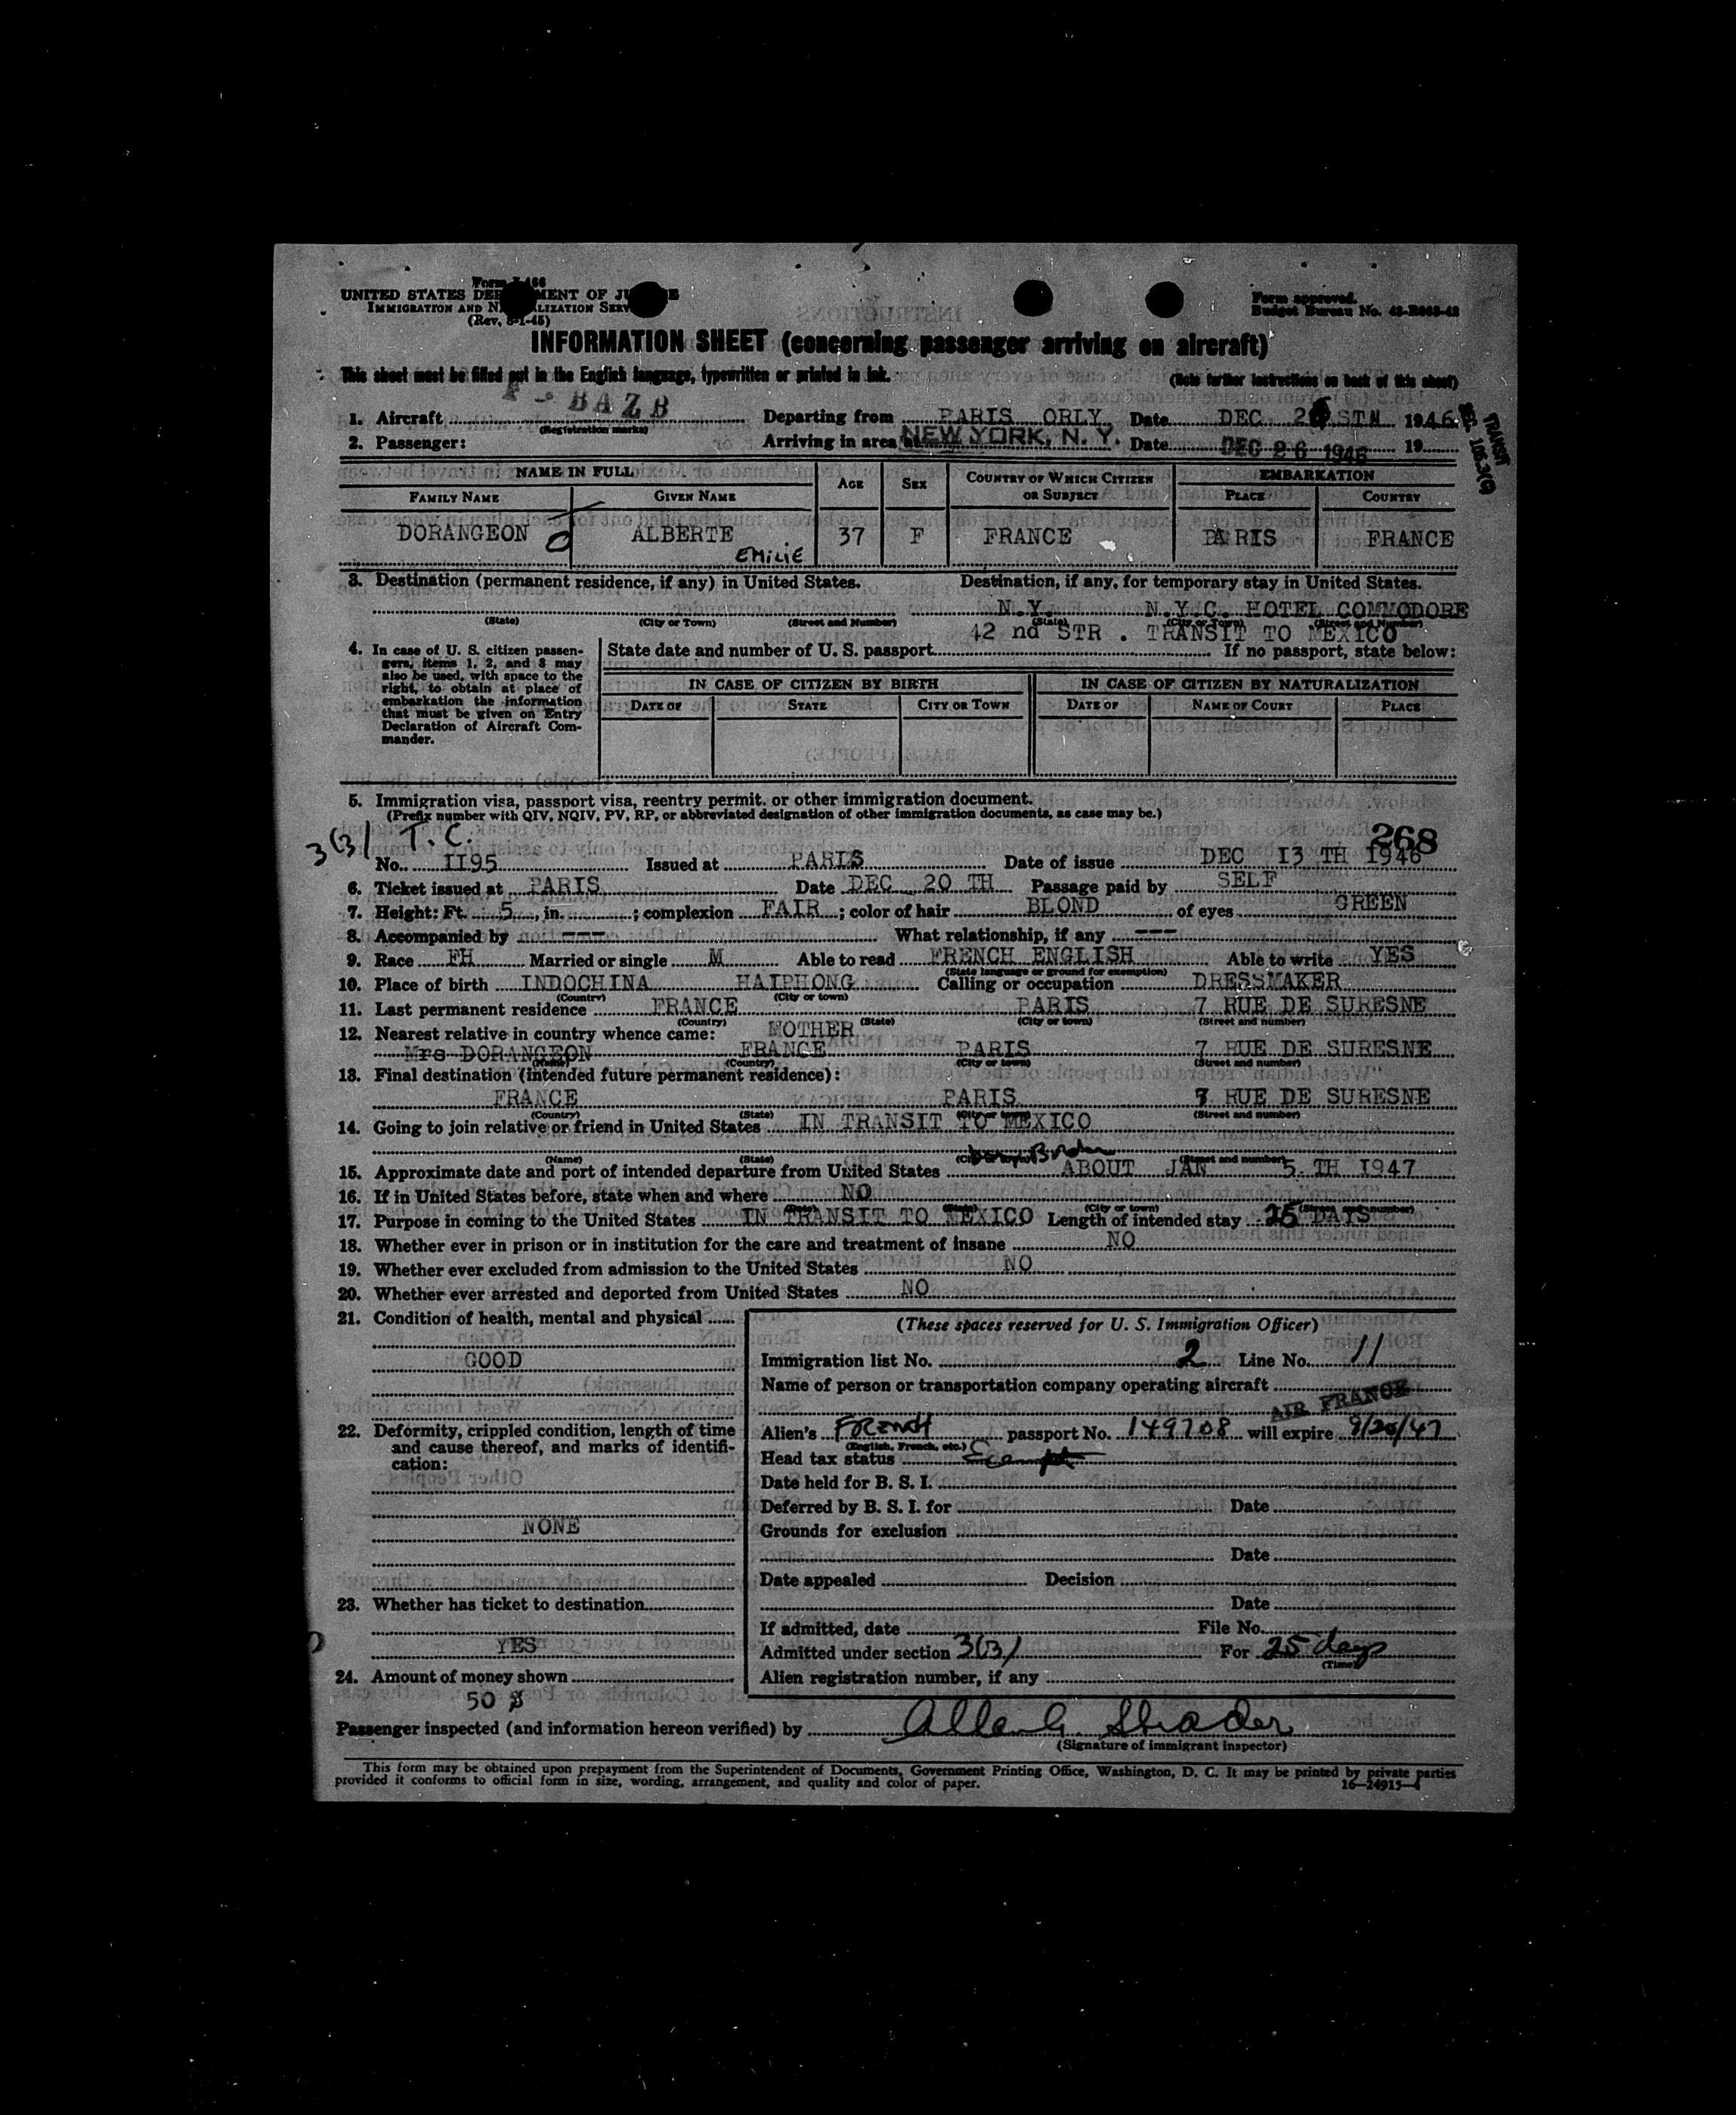 Form I-466
UNITED STATES DEPARTMENT OF JUSTICE
IMMIGRATION AND NATURALIZATION SERVICE
(Rev. 8-1-45)
Form approved.
Budget Bureau No.
INFORMATION SHEET (concerning passenger arriving on aircraft)
This sheet must be filled out in the English language, typewritten or printed in ink.
(Note further instructions on back of this sheet)
1. Aircraft F - BAZB Departing from PARIS ORLY Date DEC 2 STH 1946
(Registration marks)
2. Passenger: Arriving in area at NEW YORK, N. Y. Date DEC 26 1946 19
TRANSIT
SEC. 108.3(G)
NAME IN FULL AGE SEX COUNTRY OF WHICH CITIZEN OR SUBJECT EMBARKATION
FAMILY NAME GIVEN NAME PLACE COUNTRY
DORANGEON ALBERTE EMILIE 37 F FRANCE PARIS FRANCE
3. Destination (permanent residence, if any) in United States. Destination, if any, for temporary stay in United States.
N.Y. N.Y.C. HOTEL COMMODORE
(State) (City or Town) (Street and Number) (State) (City or Town) (Street and Number)
42 nd STR . TRANSIT TO MEXICO
4. In case of U. S. citizen passengers, items 1, 2, and 3 may also be used, with space to the right, to obtain at place of embarkation the information that must be given on Entry Declaration of Aircraft Commander.
State date and number of U. S. passport If no passport, state below:
IN CASE OF CITIZEN BY BIRTH IN CASE OF CITIZEN BY NATURALIZATION
DATE OF STATE CITY OR TOWN DATE OF NAME OF COURT PLACE
5. Immigration visa, passport visa, reentry permit, or other immigration document.
(Prefix number with QIV, NQIV, PV, RP, or abbreviated designation of other immigration documents, as case may be.)
3(3) T. C. 268
No. II95 Issued at PARIS Date of issue DEC I3 TH 1946
6. Ticket issued at PARIS Date DEC 20 TH Passage paid by SELF
7. Height: Ft. 5, in. ; complexion FAIR ; color of hair BLOND of eyes GREEN
8. Accompanied by --- What relationship, if any ---
9. Race FH Married or single M Able to read FRENCH ENGLISH Able to write YES
(State language or ground for exemption)
10. Place of birth INDOCHINA HAIPHONG Calling or occupation DRESSMAKER
(Country) (City or town)
11. Last permanent residence FRANCE PARIS 7 RUE DE SURESNE
(Country) (State) (City or town) (Street and number)
12. Nearest relative in country whence came: MOTHER
Mrs DORANGEON FRANCE PARIS 7 RUE DE SURESNE
(Name) (Country) (City or town) (Street and number)
13. Final destination (intended future permanent residence):
FRANCE PARIS 7 RUE DE SURESNE
(Country) (State) (City or town) (Street and number)
14. Going to join relative or friend in United States IN TRANSIT TO MEXICO
(Name) (State) (City or town) (Street and number)
15. Approximate date and port of intended departure from United States ABOUT JAN 5 TH I947
16. If in United States before, state when and where NO
(Date) (State) (City or town) (Street and number)
17. Purpose in coming to the United States IN TRANSIT TO MEXICO Length of intended stay 25 DAYS
18. Whether ever in prison or in institution for the care and treatment of insane NO
19. Whether ever excluded from admission to the United States NO
20. Whether ever arrested and deported from United States NO
21. Condition of health, mental and physical
GOOD
22. Deformity, crippled condition, length of time and cause thereof, and marks of identification:
NONE
23. Whether has ticket to destination
YES
24. Amount of money shown
50 $
(These spaces reserved for U. S. Immigration Officer)
Immigration list No. 2 Line No. 11
Name of person or transportation company operating aircraft
AIR FRANCE
Alien's French passport No. 149708 will expire 9/20/47
(English, French, etc.)
Head tax status Exempt
Date held for B. S. I.
Deferred by B. S. I. for Date
Grounds for exclusion
Date
Date appealed Decision
Date
If admitted, date File No.
Admitted under section 3(3) For 25 days
(Time)
Alien registration number, if any
Passenger inspected (and information hereon verified) by Allen G. Strader
(Signature of immigrant inspector)
This form may be obtained upon prepayment from the Superintendent of Documents, Government Printing Office, Washington, D. C. It may be printed by private parties
provided it conforms to official form in size, wording, arrangement, and quality and color of paper. 16-24915-4